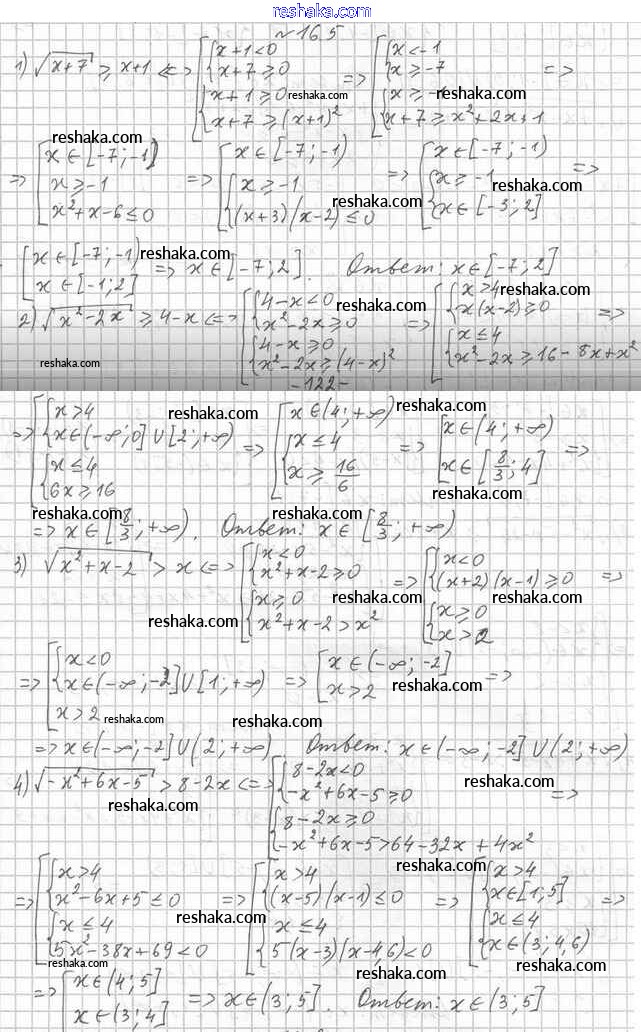 reshaka.com
№16.5
1) √(x+7) ≥ x+1 <=> [ { x+1<0 { x+7≥0 { x+1≥0 { x+7≥(x+1)² => [ { x<-1 { x≥-7 { x≥-1 { x+7≥x²+2x+1 =>
reshaka.com
reshaka.com
reshaka.com
=> [ x∈[-7;-1) { x≥-1 { x²+x-6≤0 => [ x∈[-7;-1) { x≥-1 { (x+3)(x-2)≤0 => [ x∈[-7;-1) { x≥-1 { x∈[-3;2] =>
reshaka.com
[ x∈[-7;-1) x∈[-1;2] => x∈[-7;2]. Ответ: x∈[-7;2]
reshaka.com
reshaka.com
2) √(x²-2x) ≥ 4-x <=> [ { 4-x<0 { x²-2x≥0 { 4-x≥0 { x²-2x≥(4-x)² => [ { x>4 { x(x-2)≥0 { x≤4 { x²-2x≥16-8x+x² =>
reshaka.com
reshaka.com
-122-
=> [ { x>4 { x∈(-∞;0]∪[2;+∞) { x≤4 { 6x≥16 => [ x∈(4;+∞) { x≤4 { x≥16/6 => [ x∈(4;+∞) x∈[8/3;4] =>
reshaka.com
reshaka.com
reshaka.com
reshaka.com
reshaka.com
=> x∈[8/3;+∞). Ответ: x∈[8/3;+∞)
3) √(x²+x-2) > x <=> [ { x<0 { x²+x-2≥0 { x≥0 { x²+x-2>x² => [ { x<0 { (x+2)(x-1)≥0 { x≥0 { x>2 =>
reshaka.com
reshaka.com
reshaka.com
=> [ { x<0 { x∈(-∞;-2]∪[1;+∞) x>2 => [ x∈(-∞;-2] x>2 =>
reshaka.com
reshaka.com
reshaka.com
=> x∈(-∞;-2]∪(2;+∞) Ответ: x∈(-∞;-2]∪(2;+∞)
4) √(-x²+6x-5) > 8-2x <=> [ { 8-2x<0 { -x²+6x-5≥0 { 8-2x≥0 { -x²+6x-5>64-32x+4x² =>
reshaka.com
reshaka.com
reshaka.com
=> [ { x>4 { x²-6x+5≤0 { x≤4 { 5x²-38x+69<0 => [ { x>4 { (x-5)(x-1)≤0 { x≤4 { 5(x-3)(x-4,6)<0 => [ { x>4 { x∈[1;5] { x≤4 { x∈(3;4,6)
reshaka.com
reshaka.com
reshaka.com
=> [ x∈(4;5] x∈(3;4] => x∈(3;5]. Ответ: x∈(3;5]